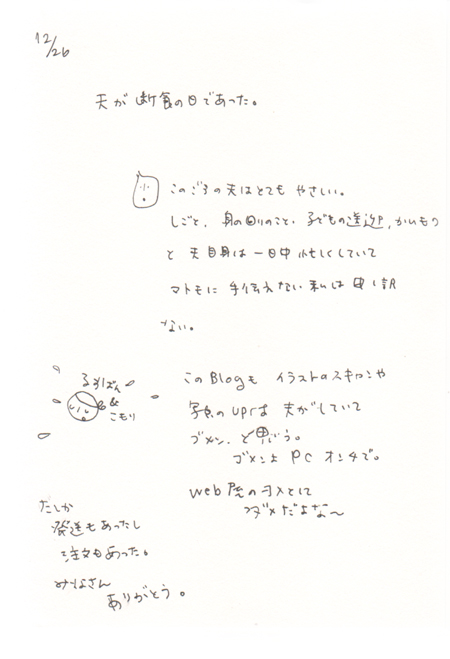 12/26
夫が断食の日であった。
このごろの夫はとても やさしい。
しごと、身の回りのこと、子どもの送迎、かいもの
と 夫自身は一日中忙しくしていて
マトモに手伝えない私は申し訳
ない。
るすばん
&
こもり
このBlogも イラストのスキャンや
写真のuprは 夫がしていて
ゴメン、と思う。
ゴメンよ PCオンチで。
web屋のヨメとして
ダメだよな〜
たしか
発送もあったし
注文もあった。
みなさん
ありがとう。